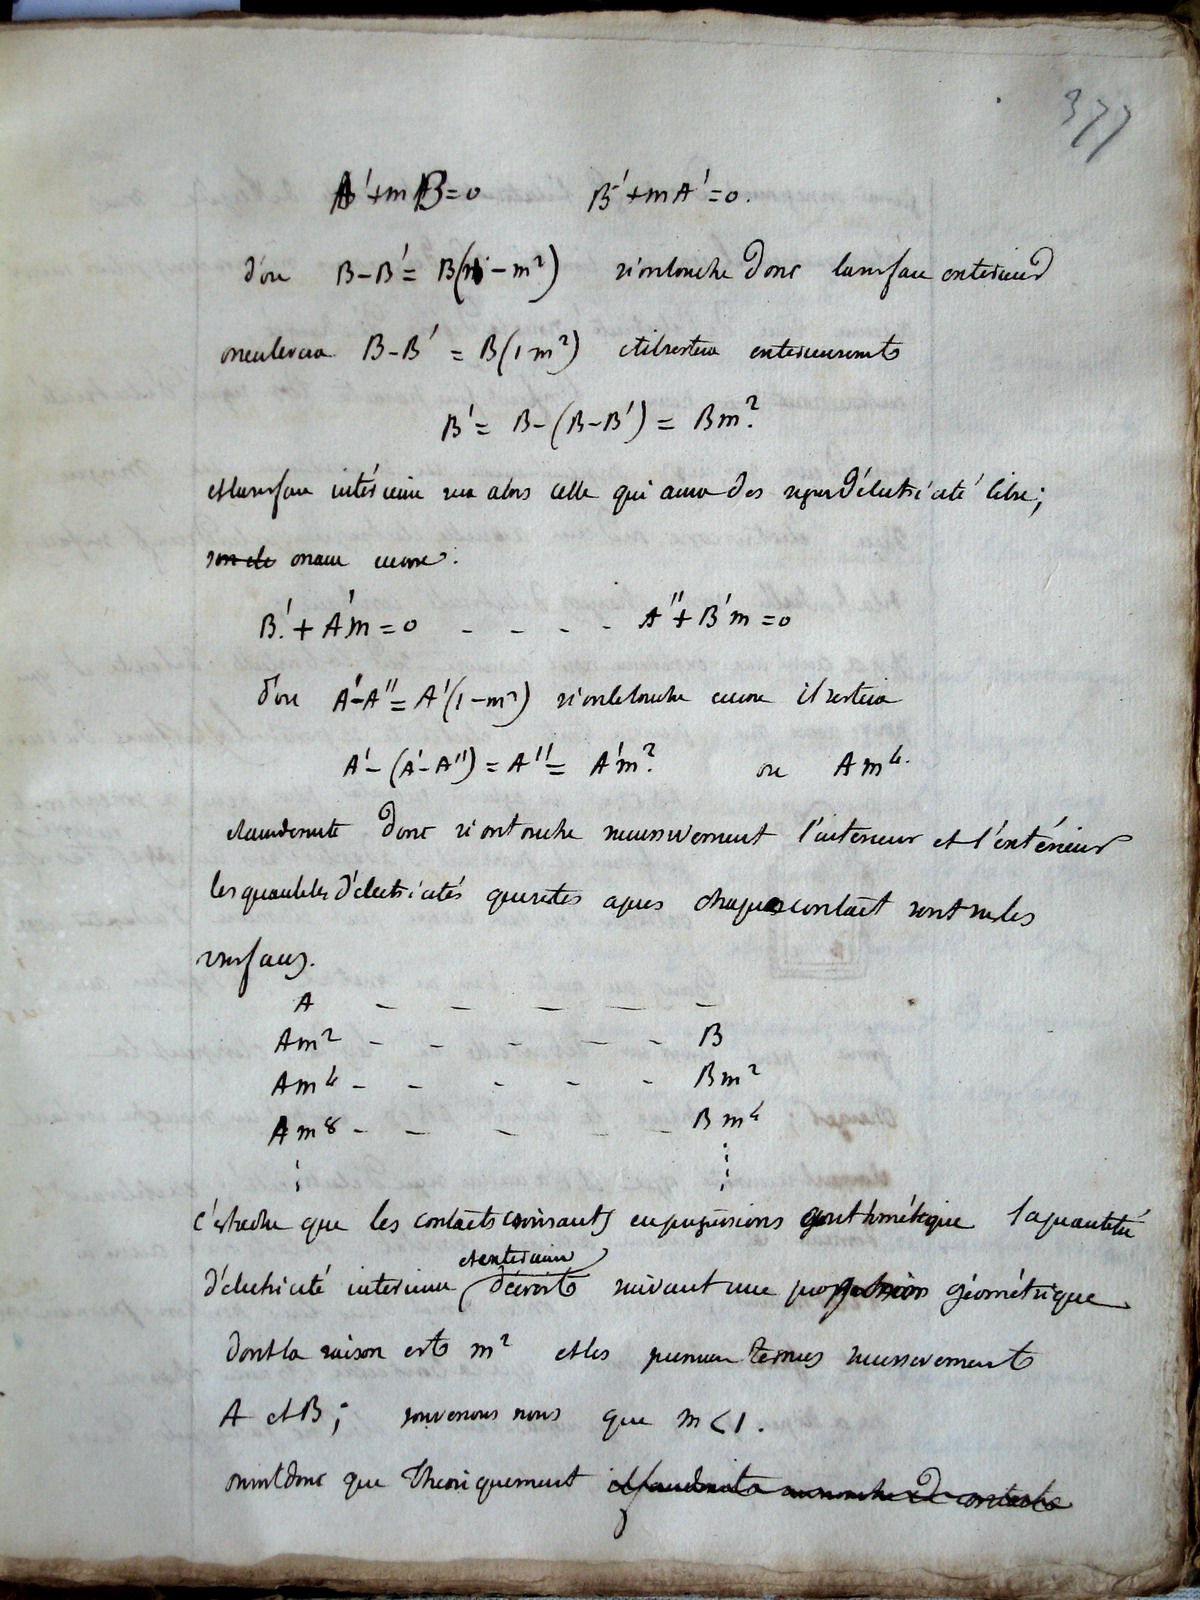 377
A'+mB=0 B'+mA'=0.
d'ou B-B'= B(1-m²) si on touche donc la surface exterieur
on enlevera B-B' = B(1 m²) et il restera exterieurement
B'= B-(B-B') = Bm².
et la surface intérieure sera alors celle qui aura des signes d'électricité libre;
on aura encore.
B'.+A'm=0 - - - - A"+B'm=0
d'ou A'-A"=A'(1-m²) si on le touche encore il restera
A'-(A'-A")=A"= A'm². ou Am⁴.
donc si on touche successivement l'interieur et l'extérieur
les quantités d'électricités qui restes apres chaque contact sont sur les
surfaces.
A - - - - - -
Am² - - - - - B
Am⁴ - - - - - Bm²
Am8 - - - - - Bm⁴
c'est a dire que les contacts croissants en progressions arithmétique la quantité
et exterieure
d'électricité interieure décroit suivant une progression géométrique
dont la raison est m² et les premier termes successivement
A et B; souvenons nous que m<1.
on voit donc que théoriquement il faudroit un nombre de contacts